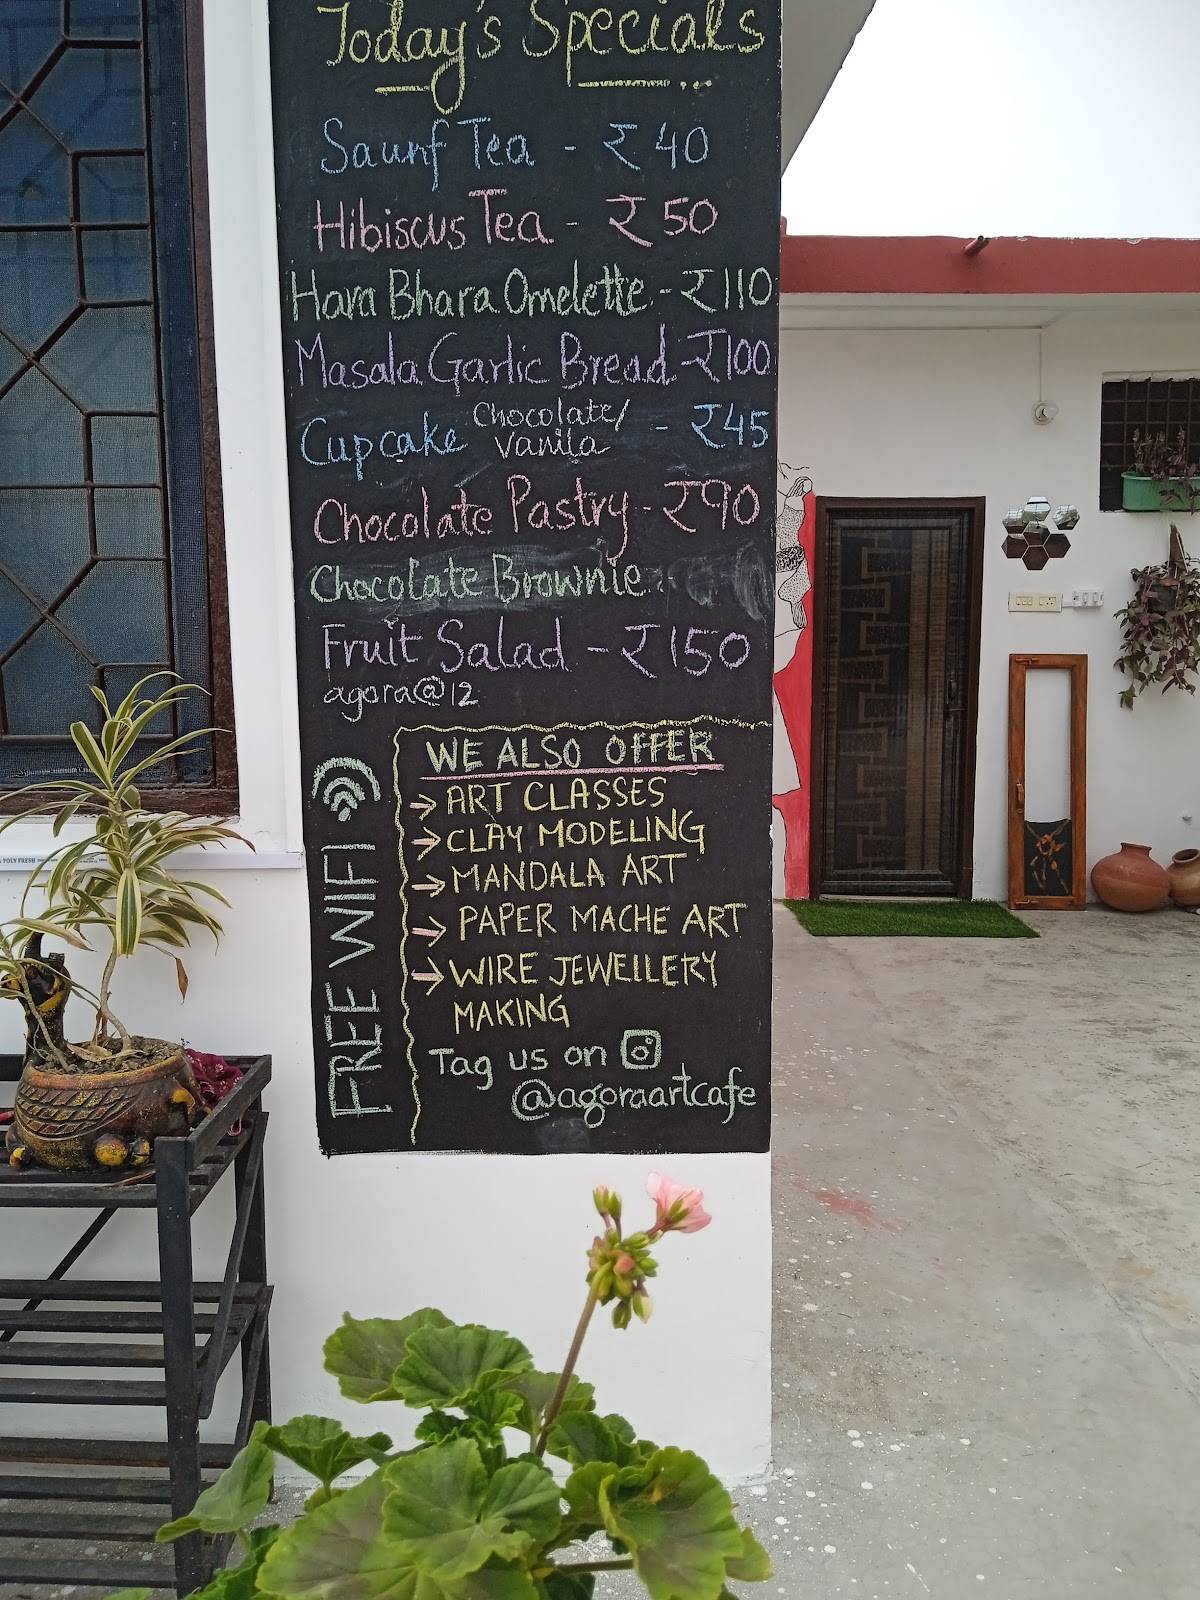 Today's Specials
Saunf Tea - ₹40
Hibiscus Tea - ₹50
Hara Bhara Omelette - ₹110
Masala Garlic Bread - ₹100
Cupcake Chocolate/ Vanilla - ₹45
Chocolate Pastry - ₹90
Chocolate Brownie
Fruit Salad - ₹150
agora@12
WE ALSO OFFER
→ ART CLASSES
→ CLAY MODELING
→ MANDALA ART
→ PAPER MACHE ART
→ WIRE JEWELLERY
MAKING
Tag us on
@agoraartcafe
FREE WIFI
POLY FRESH